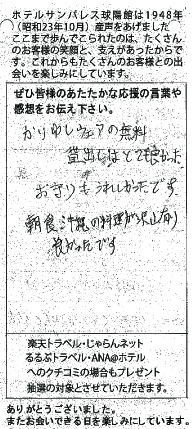 ホテルサンパレス球陽館は1948年
(昭和23年10月)産声をあげました
ここまで歩んでこられたのは、たくさん
のお客様の笑顔と、支えがあったからで
す。これからもたくさんのお客様との出
会いを楽しみにしています。
ぜひ皆様のあたたかな応援の言葉や
感想をお伝え下さい。
かりゆしウェアの無料
貸出しはとても良かった
おきりもうれしかったです
朝食沖縄の料理が沢山有り
良かったです
楽天トラベル・じゃらんネット
るるぶトラベル・ANA@ホテル
へのクチコミの場合もプレゼント
抽選の対象とさせていただきます。
ありがとうございました。
またお会いできる日を楽しみにしています。